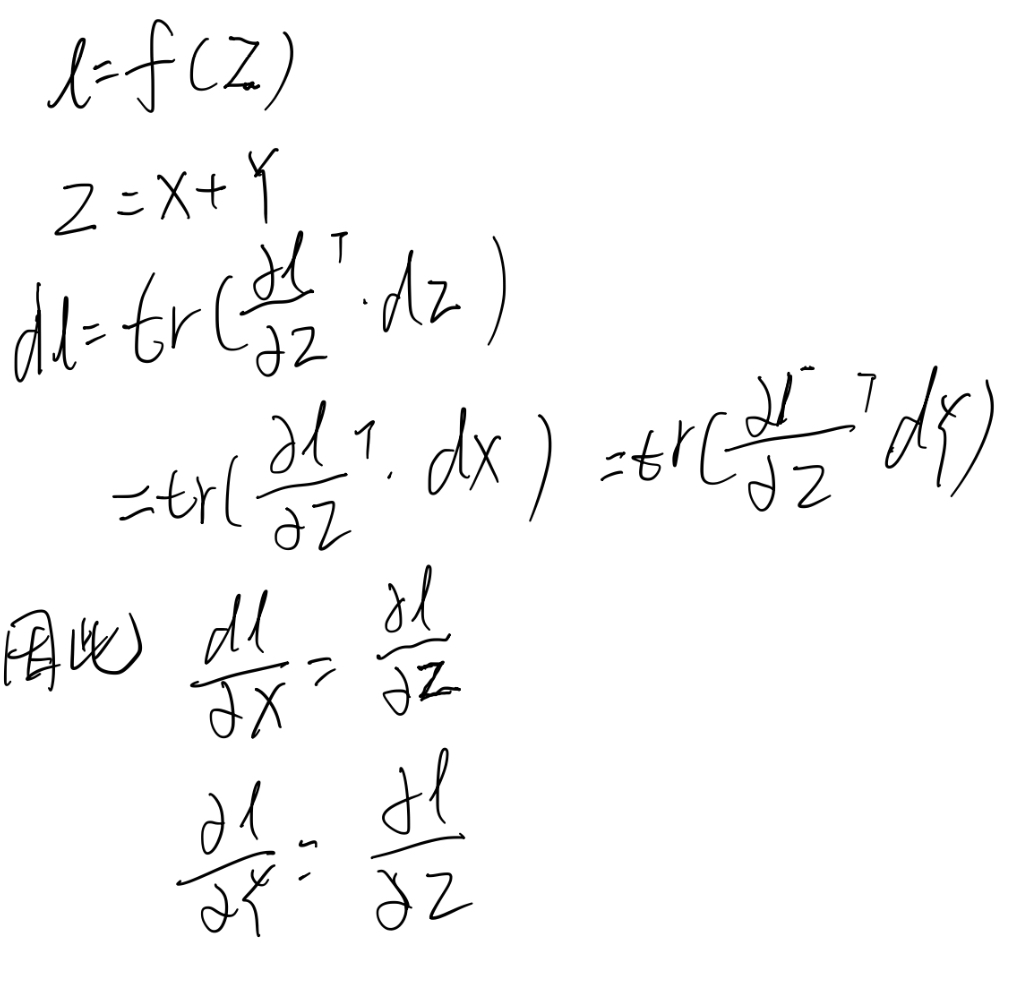 l=f(Z)
Z=X+Y
dl=tr(∂l/∂Z^T·dZ)
=tr(∂l/∂Z^T·dX) =tr(∂l/∂Z^T dY)
因此 dl/∂X = ∂l/∂Z
∂l/∂Y = ∂l/∂Z